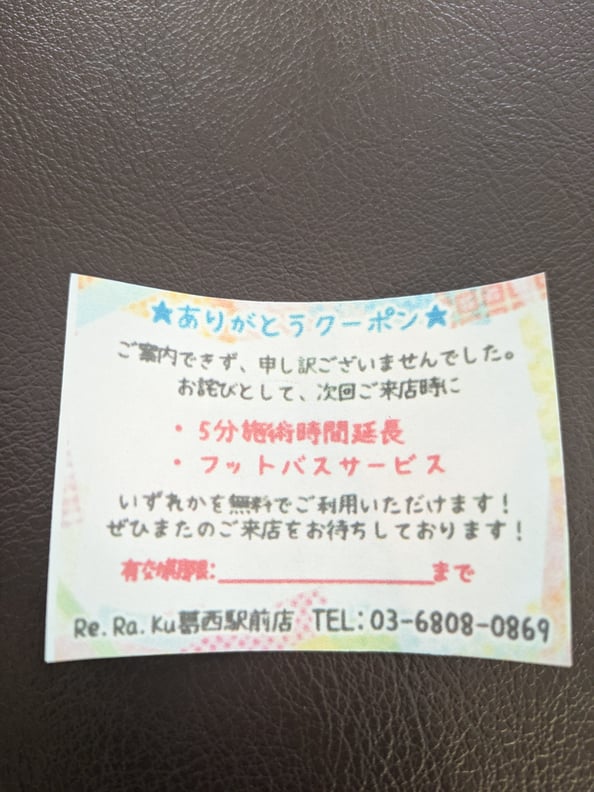 ★ありがとうクーポン★
ご案内できず、申し訳ございませんでした。
お詫びとして、次回ご来店時に
・5分施術時間延長
・フットバスサービス
いずれかを無料でご利用いただけます！
ぜひまたのご来店をお待ちしております！
有効期限:____________________まで
Re.Ra.Ku葛西駅前店 TEL:03-6808-0869